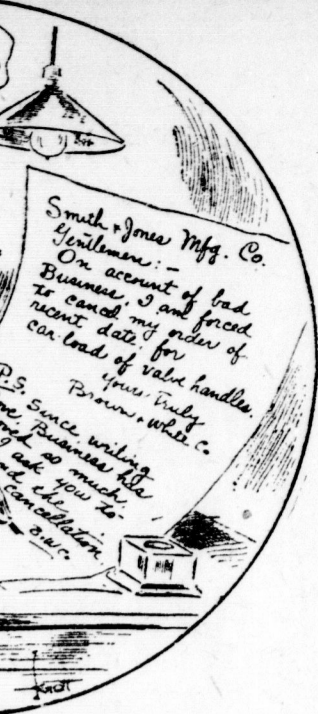 Smith & Jones Mfg. Co.
Gentlemen:-
On account of bad
Business, I am forced
to cancel my order of
recent date, for
car-load of valve handles.
Yours Truly
Brown & White Co
P.S. Since writing
Business has
so much
I ask you to
the
cancellation
B.W.Co.